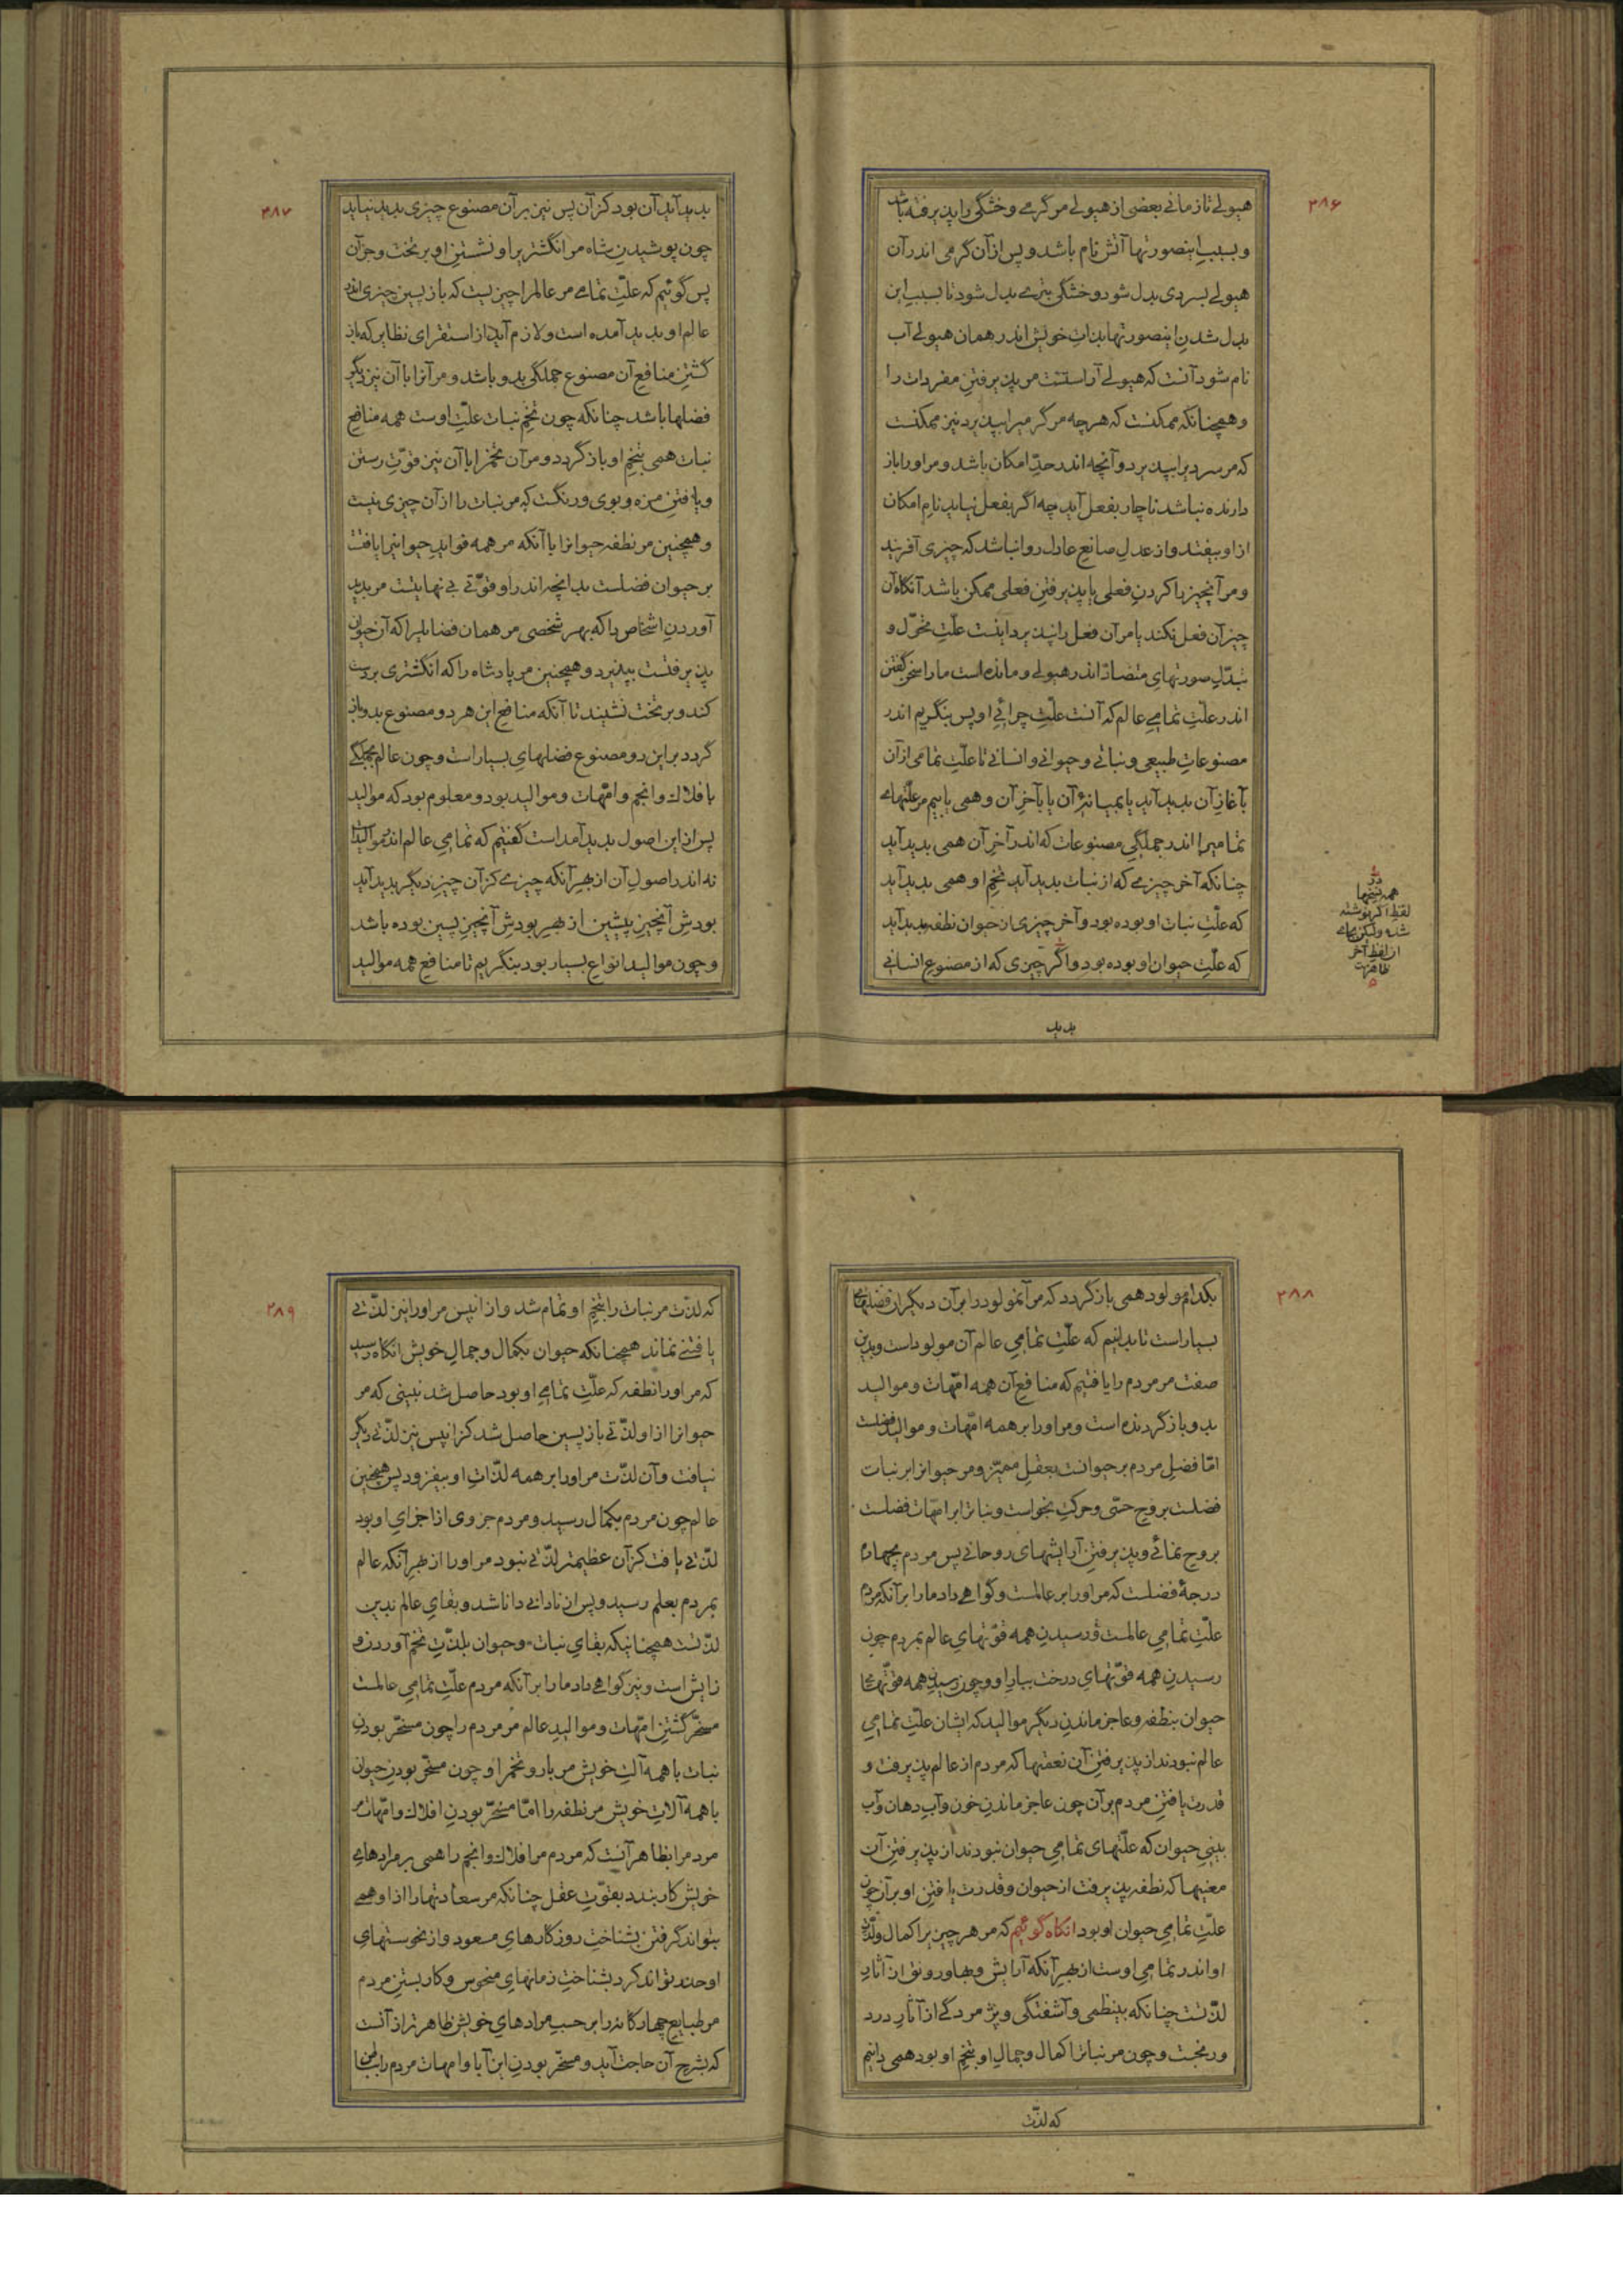 ۲۸۶
هیولے تا زمانے بعضی از هیولے مر گرمے و خشگی را پذیرفته باشد
و بسبب اینصورتها آتش نام باشد و پس از آن گرمی اندر آن
هیولے بسردی بدل شود و خشگی بترے بدل شود تا بسبب این
بدل شدن اینصورتها بذات خویش اندر همان هیولے آب
نام شود آنست که هیولے آراستست مر پذیرفتن مفردات را
و همچنانکه ممکنست که هر چه مر گرمیرا بپذیرد نیز ممکنست
که مر سردیرا بپذیرد و آنچه اندر حدّ امکان باشد و مر او را باز
دارنده نباشد ناچار بفعل آید چه اگر بفعل نیاید نام امکان
از او بیفتد و از عدل صانع عادل روا نباشد که چیزی آفریند
و مر آنچیز را کردن فعلی یا پذیرفتن فعلی ممکن باشد آنگاه آن
چیز آن فعل نکند یا مر آن فعل را نپذیرد اینست علّت تحوّل و
تبدّل صورتهای متضادّ اندر هیولے و مانده است ما را سخن گفتن
اندر علّت تمامے عالم که آنست علّت چرائے او پس بنگریم اندر
مصنوعات طبیعی و نباتے و حیوانے و انسانے تا علّت تمامی از آن
بآغاز آن پدید آید یا بمیانۀ آن یا بآخر آن و همی یابیم مر علّتهاے
تمامیرا اندر جملگی مصنوعات که اندر آخر آن همی پدید آید
چنانکه آخر چیزے که از نبات پدید آید تخم او همی پدید آید
که علّت نبات او بوده بود و آخر چیزی از حیوان نطفه پدید آید
که علّت حیوان او بوده بود و اگر چیزی که از مصنوع انسانے
در
همه نسخها
لفظ اگر نوشته
شده ولیکن بجاے
از لفظ آخر
ظاهرست
پدید
۲۸۷
پدید آید آن بود کز آن پس نیز بر آن مصنوع چیزی پدید نیاید
چون پوشیدن شاه مر انگشتریرا و نشستن او بر تخت و جز آن
پس گوئیم که علّت تمامے مر عالمرا چیزیست که باز پسین چیزی اندر
عالم او پدید آمده است و لازم آید از استقرای نظایر که باز
گشتن منافع آن مصنوع جملگی بدو باشد و مر آنرا با آن نیز دیگر
فضلها باشد چنانکه چون تخم نبات علّت اوست همه منافع
نبات همی بتخم او باز گردد و مر آن تخمرا با آن نیز قوّت رستن
و یافتن مزه و بوی و رنگست که مر نبات را از آن چیزی نیست
و همچنین مر نطفه حیوانرا با آنکه مر همه فواید حیوانیرا یافتست
بر حیوان فضلست بدانچه اندر او قوّتے بے نهایتست مر پدید
آوردن اشخاص را که بهر شخصی مر همان فضایلرا که آن حیوان
پذیرفتست بپذیرد و همچنین مر پادشاه را که انگشتری بر دست
کند و بر تخت نشیند تا آنکه منافع این هر دو مصنوع بدو باز
گردد بر این دو مصنوع فضلهای بسیار است و چون عالم بجملگے
با فلاک و انجم و امّهات و موالید بود و معلوم بود که موالید
پس از این اصول پدید آمداست گفتیم که تمامی عالم اندر موالیدست
نه اندر اصول آن از بهر آنکه چیزے کز آن چیز دیگر پدید آید
بودش آنچیز پیشین از بهر بودش آنچیز پسین بوده باشد
و چون موالید انواع بسیار بود بنگریم تا منافع همه موالید
۲۸۸
بکدام مولود همی باز گردد که مر آنمولود را بر آن دیگران فضلهاے
بسیار است تا بدانیم که علّت تمامی عالم آن مولود است و بدین
صفت مر مردم را یافتیم که منافع آن همه امّهات و موالید
بدو باز گردنده است و مر او را بر همه امّهات و موالید فضلست
امّا فضل مردم بر حیوانست بعقل ممیّز و مر حیوانرا بر نبات
فضلست بروح حسّی و حرکت بخواست و نباترا بر امّهات فضلست
بروح نمائے و پذیرفتن آرایشهای روحانے پس مردم بچهارم
درجۀ فضلست که مر او را بر عالمست و گواهے داد ما را بر آنکه مردم
علّت تمامی عالمست و رسیدن همه قوّتهای عالم بمردم چون
رسیدن همه قوّتهای درخت ببار او و چون رسیدن همه قوّتهاے
حیوان بنطفه و عاجز ماندن دیگر موالید که ایشان علّت تمامی
عالم نبودند از پذیرفتن آن نعمتها که مردم از عالم پذیرفت و
قدرت یافتن مردم بر آن چون عاجز ماندن خون و آب دهان و آب
بینی حیوان که علّتهای تمامی حیوان نبودند از پذیرفتن آن
معنیها که نطفه پذیرفت از حیوان و قدرت یافتن او بر آن چون
علّت تمامی حیوان او بود انگاه گوئیم که مر هر چیز را کمال و لذّت
او اندر تمامی اوست از بهر آنکه آرایش و بها و رونق از آثار
لذّتست چنانکه بینظمی و آشفتگی و پژمردگے از آثار درد
و رنجست و چون مر نباترا کمال و جمال او بتخم او بود همی دانیم
که لذّت
۲۸۹
که لذّت مر نبات را بتخم او تمام شد و از انپس مر او را نیز لذّتے
یافتنے نماند همچنانکه حیوان بکمال و جمال خویش انگاه رسید
که مر او را نطفه که علّت تمامے او بود حاصل شد نبینی که مر
حیوانرا از او لذّتے باز پسین حاصل شد کز انپس نیز لذّتے دیگر
نیافت و آن لذّت مر او را بر همه لذّات او بیفزود پس همچنین
عالم چون مردم بکمال رسید و مردم جزوی از اجزای او بود
لذّتے یافت کز آن عظیمتر لذّتے نبود مر او را از بهر آنکه عالم
بمردم بعلم رسید و پس از نادانے دانا شد و بقای عالم بدین
لذّتست همچنانکه بقای نبات و حیوان بلذّت تخم آوردن و
زایش است و نیز گواهے داد ما را بر آنکه مردم علّت تمامی عالمست
مسخّر گشتن امّهات و موالید عالم مر مردم را چون مسخّر بودن
نبات با همه آلت خویش مر بار و تخمرا و چون مسخّر بودن حیوان
با همه آلات خویش مر نطفه را امّا مسخّر بودن افلاک و امّهات مر
مردمرا بظاهر آنست که مردم مر افلاک و انجم را همی بر مرادهاے
خویش کار بندد بقوّت عقل چنانکه مر سعادتهارا از او همے
بتواند گرفتن بشناخت روزگارهای مسعود و از نحوستهای
او حذر تواند کرد بشناخت زمانهای منحوس و کار بستن مردم
مر طبایع چهارگانه را بر حسب مرادهای خویش ظاهرتر از آنست
که بشرح آن حاجت آید و مسخّر بودن این آبا و امهات مردم را